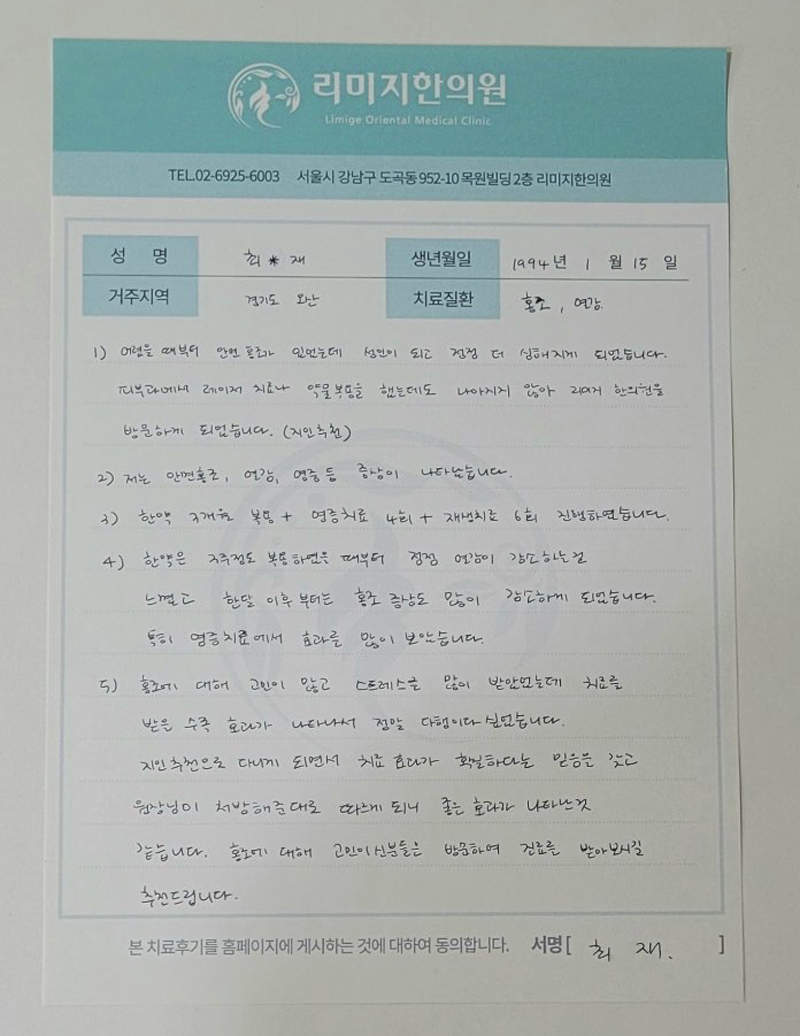 리미지한의원
Limige Oriental Medical Clinic
TEL.02-6925-6003 서울시 강남구 도곡동 952-10 목원빌딩 2층 리미지한의원
성 명 최 * 재 생년월일 1994년 1월 15일
거주지역 경기도 오산 치료질환 홍조, 열감.
1) 어렸을 때부터 안면 홍조가 있었는데 성인이 되고 점점 더 심해지게 되었습니다.
피부과에서 레이저 치료나 약물복용을 했는데도 나아지지 않아 리미지 한의원을
방문하게 되었습니다. (지인추천)
2) 저는 안면홍조, 열감, 염증 등 증상이 나타났습니다.
3) 한약 3개월 복용 + 염증치료 4회 + 재생치료 6회 진행하였습니다.
4) 한약은 3주정도 복용하였을 때부터 점점 열감이 감소하는걸
느꼈고 한달 이후부터는 홍조 증상도 많이 감소하게 되었습니다.
특히 염증치료에서 효과를 많이 보았습니다.
5) 홍조에 대해 고민이 많고 스트레스를 많이 받았었는데 치료를
받은 후 효과가 나타나서 정말 다행이다 싶었습니다.
지인추천으로 다니게 되면서 치료 효과가 확실하다는 믿음을 갖고
원장님이 처방해준대로 따르게 되니 좋은 효과가 나타난것
같습니다. 홍조에 대해 고민이신분들은 방문하여 진료를 받아보시길
추천드립니다.
본 치료후기를 홈페이지에 게시하는 것에 대하여 동의합니다. 서명 [ 최 재. ]